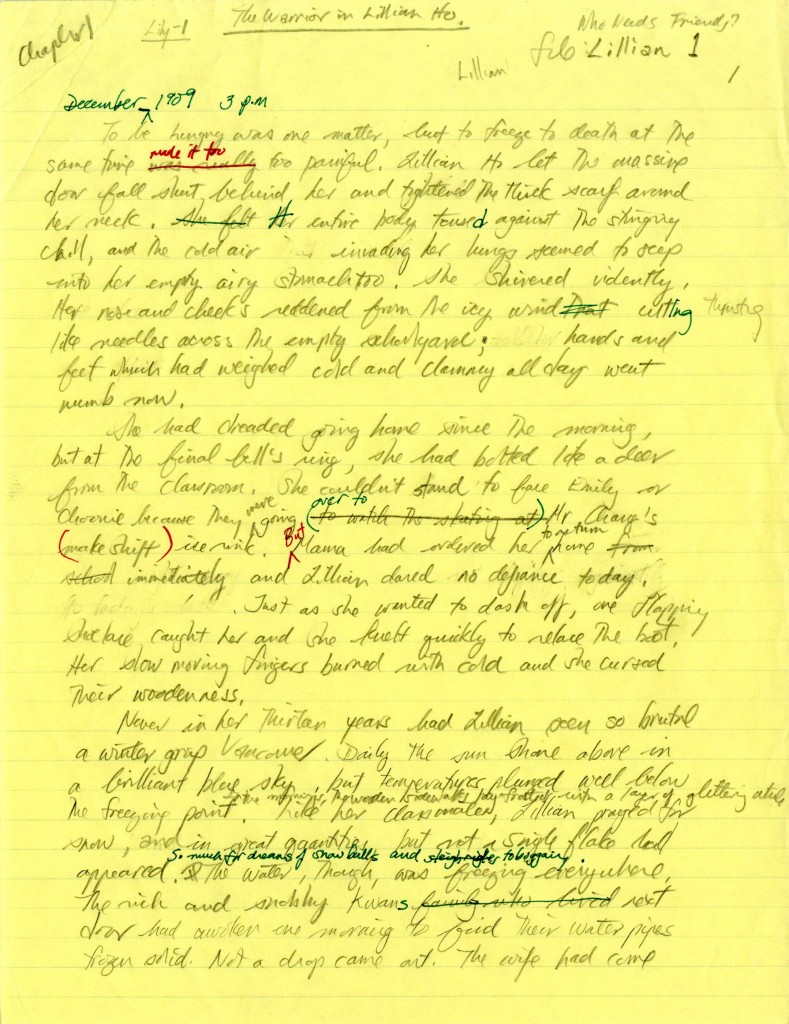 The Warrior in Lillian Ho.
Who Needs Friends?
Chapter 1
Lily-1
Lillian
file: Lillian 1
1
December, 1909 3 p.m
To be hungry was one matter, but to freeze to death at the
same time was really made it too too painful. Lillian Ho let the massive
door fall shut behind her and tightened the thick scarf around
her neck. She felt Her entire body towards against the stinging
chill, and the cold air invading her lungs seemed to seep
into her empty airy stomach too. She shivered violently.
Her nose and cheeks reddened from the icy wind that cutting thrusting
like needles across the empty schoolyard; hands and
feet which had weighed cold and clammy all day went
numb now.
She had dreaded going home since the morning,
but at the final bell's ring, she had bolted like a deer
from the classroom. She couldn't stand to face Emily or
because they were going (over to to watch the skating at) Mr Chang's
(makeshift) ice rink. But Mama had ordered her to return home from
school immediately and Lillian dared no defiance today.
Just as she wanted to dash off, one flapping
shoelace caught her and she knelt quickly to relace the boot.
Her slow moving fingers burned with cold and she cursed
their woodenness.
Never in her thirteen years had Lillian seen so brutal
a winter grip Vancouver. Daily the sun shone above in
a brilliant blue sky, but temperatures plunged well below
the freezing point. In the mornings, the wooden sidewalks lay frosted with a layer of glittering
Like her classmates, Lillian prayed for
snow, and in great quantities, but not a single flake had
appeared. So much for dreams of snowballs and sleigh rides tobogganing.
The water, though, was freezing everywhere.
The rich and snobby Kwans family who lived next
door had awoken one morning to find their water pipes
frozen solid. Not a drop came out. The wife had come